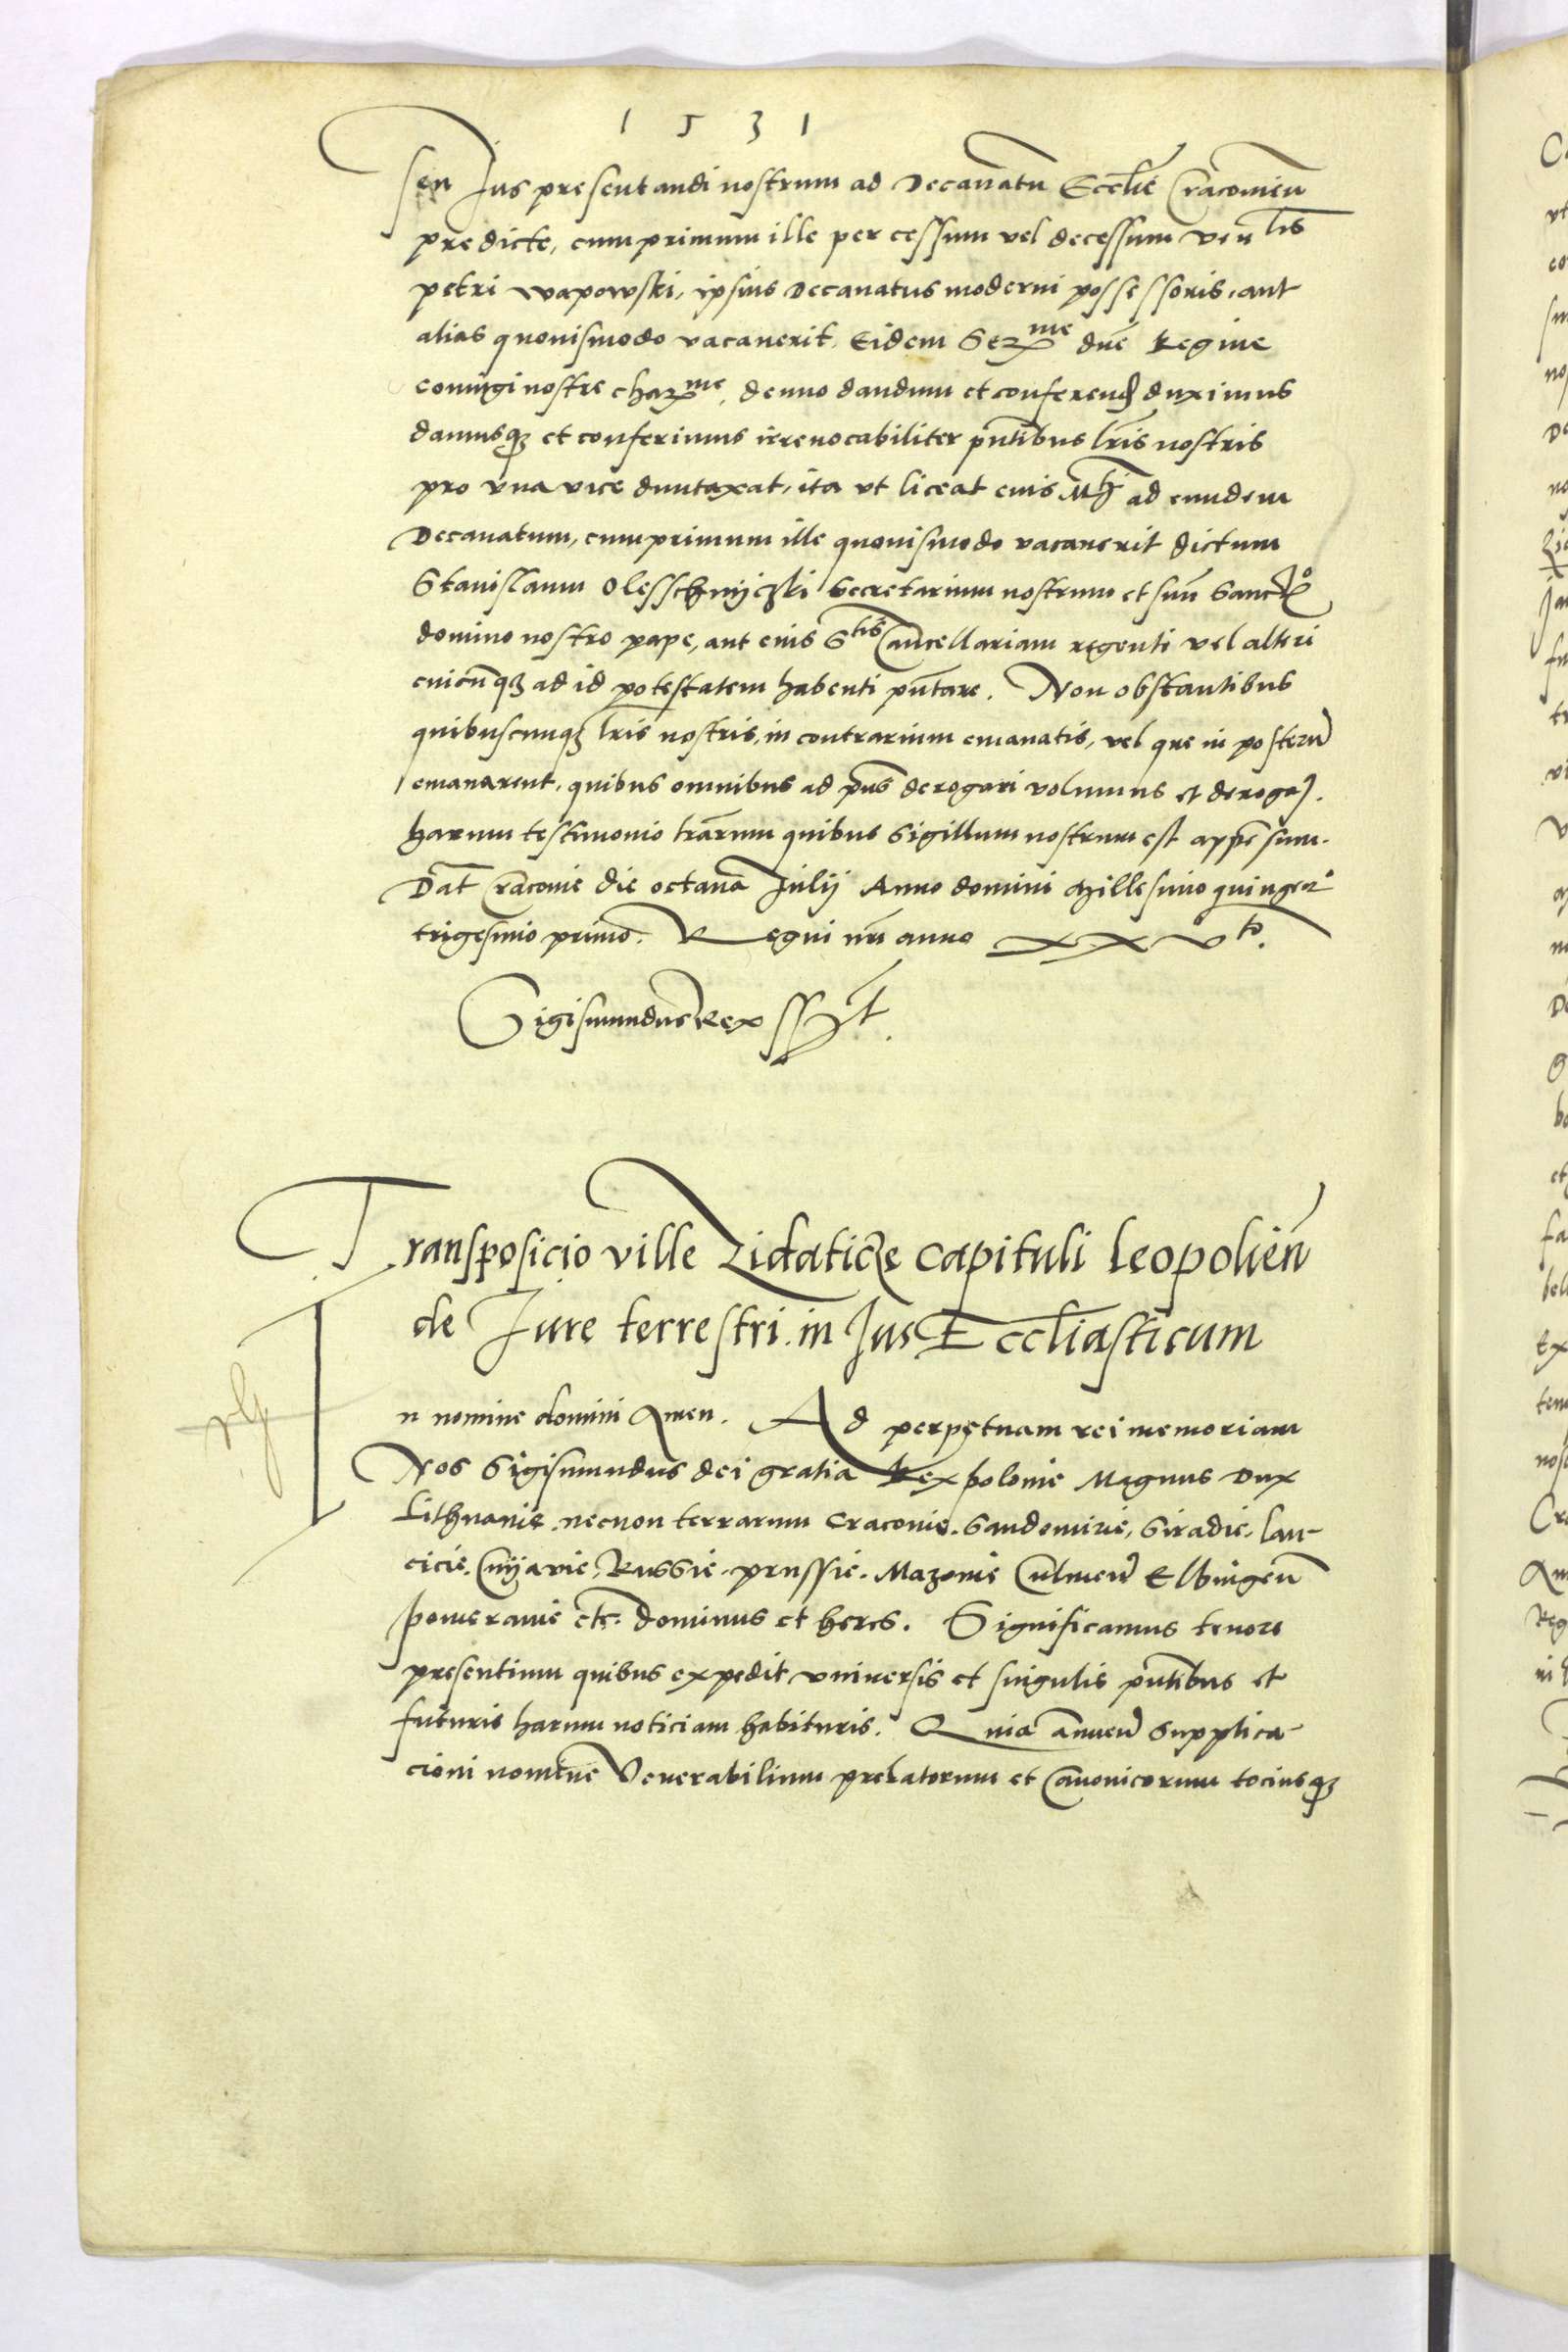 1531
seu Jus presentandi nostrum ad Decanatu Ecclie Cracovien
predicte, cum primum ille per cessum vel decessum venlis
petri wapowski, ipsius Decanatus moderni possessoris, aut
alias quovismodo vacaverit, Eidem Serme dne Regine
coniugi nostre charme, denuo dandum et conferend duximus
damusq et conferimus irrevocabiliter pntibus lris nostris
pro una vice duntaxat, ita ut liceat eius Mti ad eundem
Decanatum, cum primum ille quovismodo vacaverit dictum
Stanislaum Olesschnyczki Secretarium nostrum et suu Sanctmo
domino nostro pape, aut eius Stis Cancellariam regenti vel alteri
cuicunq ad id potestatem habenti pntare. Non obstantibus
quibuscunq lris nostris, in contrarium emanatis, vel que in posteru
emanarent, quibus omnibus ad pns derogari volumus et deroga.
harum testimonio lrarum quibus Sigillum nostrum est appensum.
Dat Cracovie die octava Julij Anno domini Millesimo quingen
trigesimo primo. Regni nri anno xxvto.
Sigismundus Rex sst.
Transposicio ville Zidaticze capituli leopolien
de Jure terrestri in Jus Eccliasticum
In nomine domini Amen. Ad perpetuam rei memoriam
Nos Sigismundus dei gratia Rex polonie Magnus Dux
Lithuanie necnon terrarum Cracovie, Sandomirie, Siradie, lan-
cicie, Cuyavie, Russie, prussie, Mazovie Culmen Elbingen
pomeranie etc. dominus et heres. Significamus tenore
presentium quibus expedit universis et singulis pntibus et
futuris harum noticiam habituris. Quia annuen supplica-
cioni nomine Venerabilium prelatorum et Canonicorum tociusq